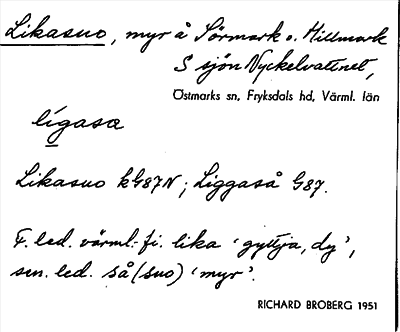 Likasuo, myr å Sörmark o. Hillmark
S sjön Nyckelvattnet,
Östmarks sn, Fryksdals hd, Värml. län
lígasα
Likasuo kG87N; Liggaså G87.
F. led. värml.-fi. lika 'gyttja, dy',
sen. led. så (suo) 'myr'.
RICHARD BROBERG 1951